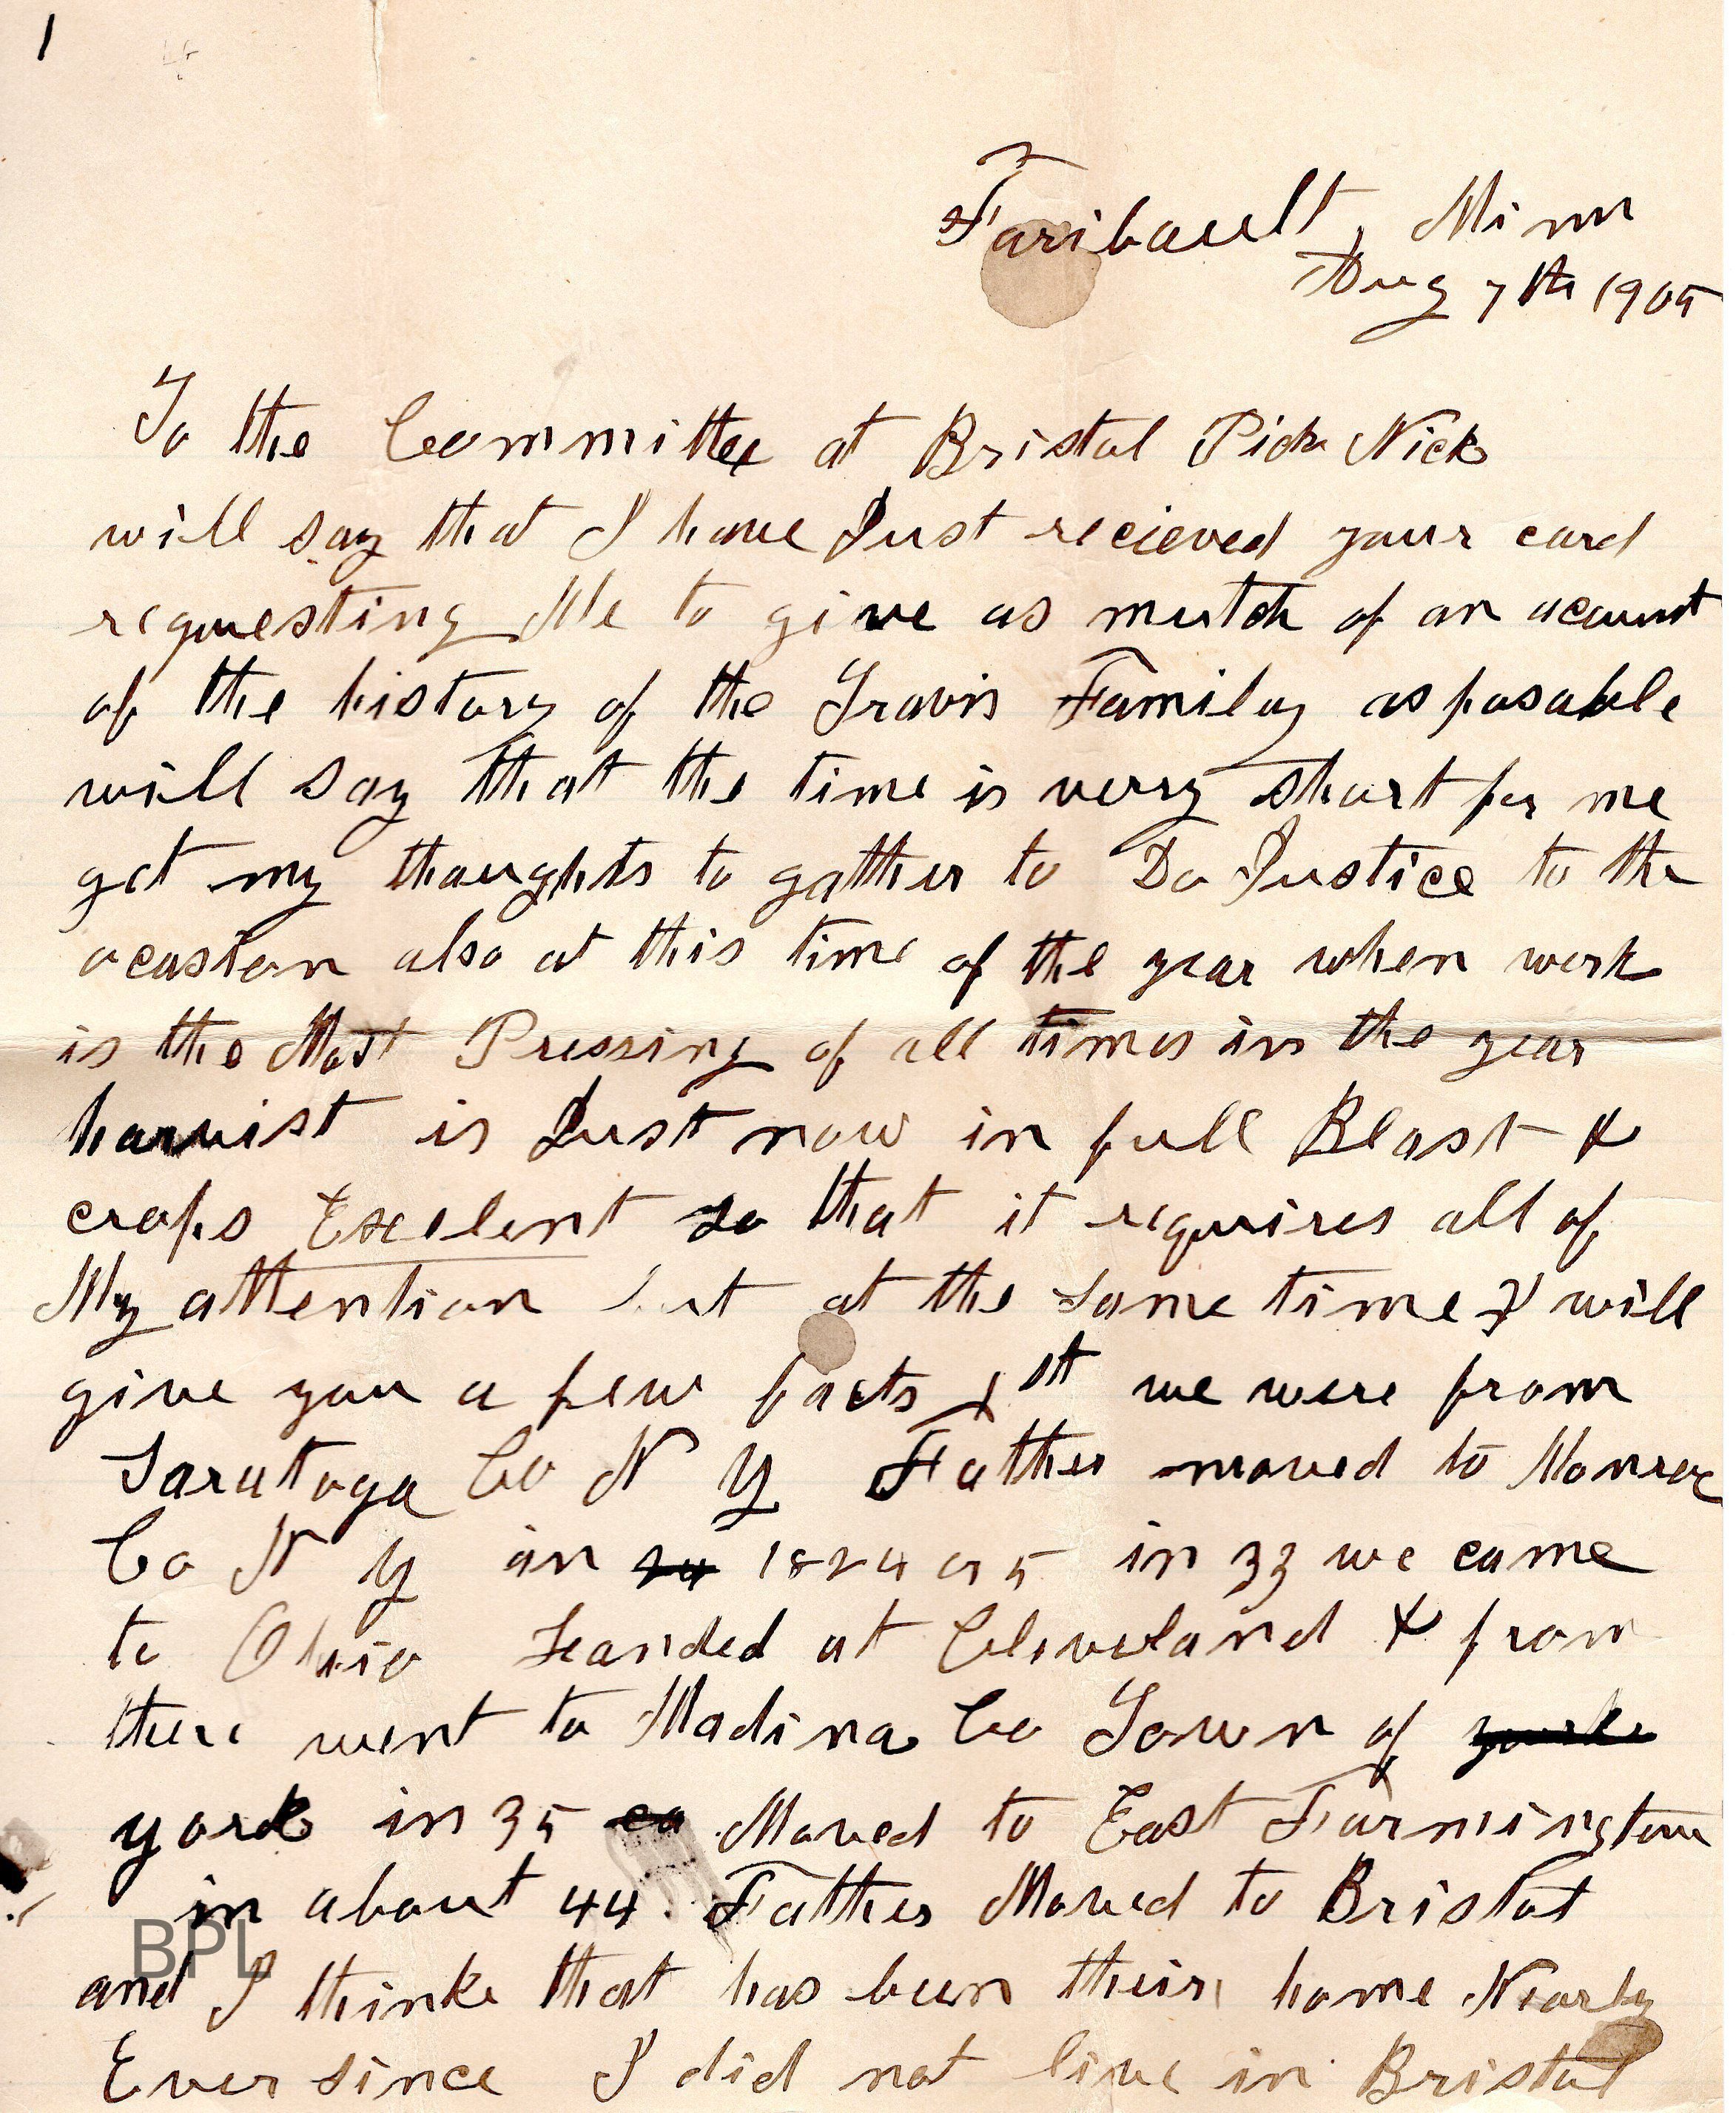 1
Faribault, Minn
Aug 7th 1905
To the Committee at Bristol Pick Nick
will say that I have Just recieved your card
requesting Me to give as mutch of an acount
of the history of the Travis Family as posable
will say that the time is very short for me
get my thoughts to gather to Do Justice to the
ocasion also at this time of the year when work
is the Most Pressing of all times in the year
harvist is Just now in full Blast &
crops Exelent so that it requires all of
My attention but at the same time I will
give you a few facts 1st we were from
Saratoga Co N Y Father moved to Monroe
Co N Y in 24 1824 or 5 in 33 we came
to Ohio Landed at Cleveland & from
there went to Madina Co Town of yorke
york in 35 Moved to East Farmington
in about 44 Father Moved to Bristol
and I thinke that has been their home Nearly
Ever since I did not live in Bristol
BPL